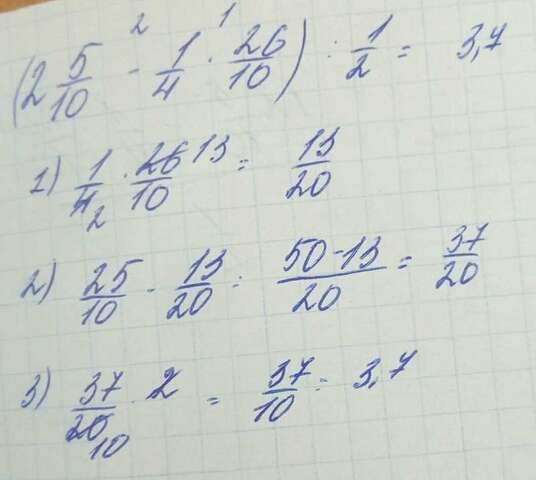 (2 5/10 -² 1/4 ·¹ 26/10) : 1/2 = 3,7
1) 1/4 2 · 26/10 13 = 13/20
2) 25/10 - 13/20 = 50-13/20 = 37/20
3) 37/20 10 · 2 = 37/10 = 3,7